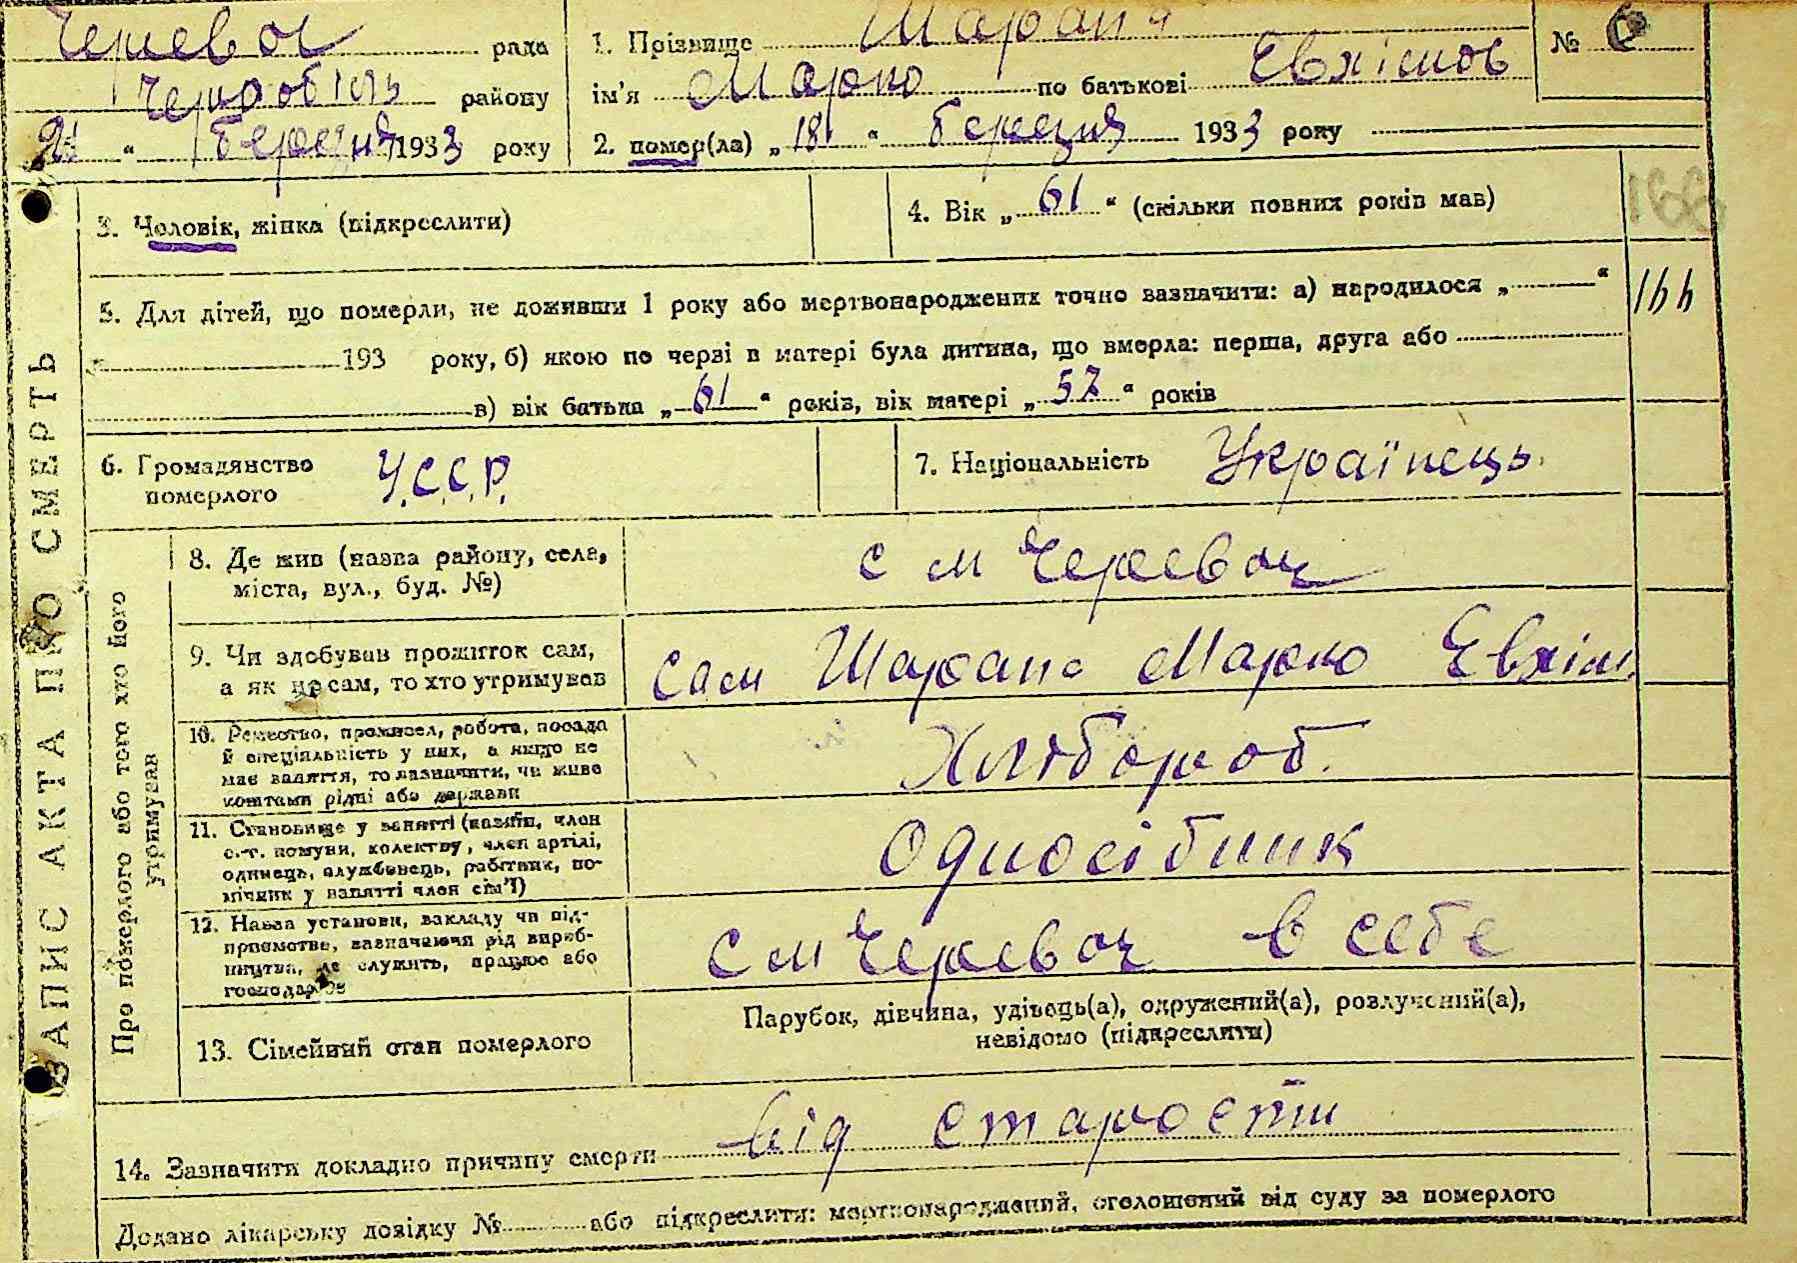 Черевач рада
Чорнобіль району
21 “ березня 1933 року
1. Прізвище Шарап
ім'я Марко по батькові Евхімов
№ 6
2. помер(ла) „ 18 “ березня 1933 року
3. Чоловік, жінка (підкреслити)
4. Вік „ 61 “ (скільки повних років мав)
166
5. Для дітей, що померли, не доживши 1 року або мертвонароджених точно зазначити: а) народилося „ “
193 року, б) якою по черзі в матері була дитина, що вмерла: перша, друга або
в) вік батька „ 61 “ років, вік матері „ 57 “ років
6. Громадянство
померлого
У.С.С.Р.
7. Національність Українець
ЗАПИС АКТА ПРО СМЕРТЬ
Про померлого або того хто його
утримував
8. Де жив (назва району, села,
міста, вул., буд. №)
с м Черевач
9. Чи здобував прожиток сам,
а як не сам, то хто утримував
сам Шарапа Марко Евхім
10. Ремество, промисел, робота, посада
й спеціяльність у них, а якщо не
має заняття, то зазначити, чи живе
коштами рідні або держави
Хлібороб.
11. Становище у занятті (хазяїн, член
с.-г. комуни, колективу, член артілі,
одинець, службовець, робітник, по-
мічник у занятті член сім'ї)
Односібник
12. Назва установи, закладу чи під-
приємства, зазначаючи рід вироб-
ництва, де служить, працює або
господарює
с м Черевач в себе
13. Сімейний стан померлого
Парубок, дівчина, удівець(а), одружений(а), розлучений(а),
невідомо (підкреслити)
14. Зазначити докладно причину смерти від старости
Додано лікарську довідку № або підкреслити: мертвонароджений, оголошений від суду за померлого